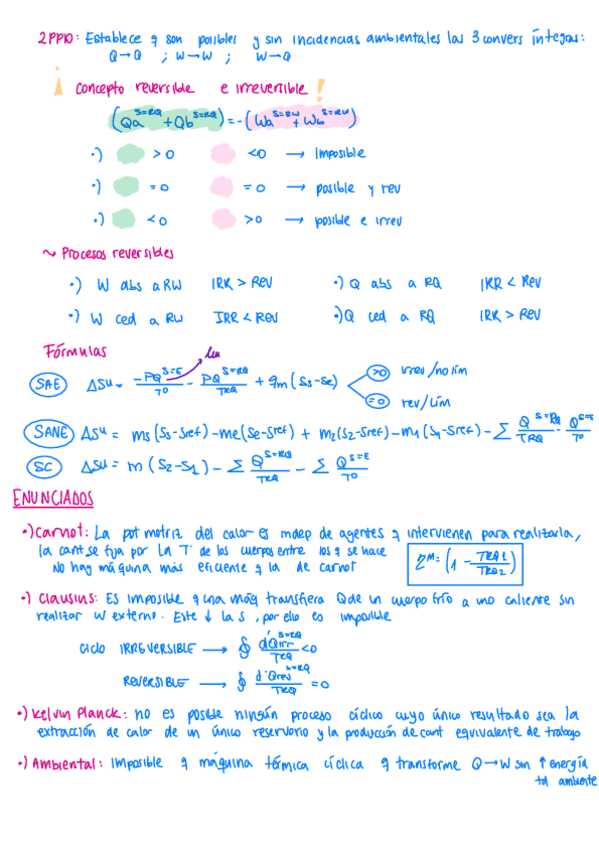 2PPIO: Establece q son posibles y sin incidencias ambientales las 3 convers íntegras:
Q→Q ; W→W ; W→Q
¡ concepto reversible e irreversible !
(Qa^S=RQ + Qb^S=RQ) = -(Wa^S=RW + Wb^S=RW)
•) > 0 < 0 → Imposible
•) = 0 = 0 → posible y rev
•) < 0 > 0 → posible e irrev
~ Procesos reversibles
•) W abs a RW IRR > Rev •) Q abs a RQ IRR < Rev
•) W ced a RW IRR < Rev •) Q ced a RQ IRR > Rev
Fórmulas
SAE ΔSu = -PQ^S=E/T° - PQ^S=RQ/TRQ + qm (Ss-Se) >0 irrev/no lím
=0 rev/lím
SANE ΔSu = ms(Ss-Sref)-me(Se-Sref) + m2(S2-Sref)-m1(S1-Sref)-Σ Q^S=RQ/TRQ - Q^S=E/T°
SC ΔSu = m (S2-S1) - Σ Q^S=RQ/TRQ - Σ Q^S=E/T°
ENUNCIADOS
•) Carnot: La pot motriz del calor es indep de agentes q intervienen para realizarla,
la cant se fija por la T° de los cuerpos entre los q se hace
No hay máquina más eficiente q la de carnot
ηM = (1 - TRQ1/TRQ2)
•) Clausius: Es imposible q una máq transfiera Q de un cuerpo frío a uno caliente sin
realizar W externo. Este ↓ la S, por ello es imposible
ciclo IRREVERSIBLE → ∮ d'Qirr^S=RQ/TRQ < 0
REVERSIBLE → ∮ d'Qrev^S=RQ/TRQ = 0
•) Kelvin Planck: no es posible ningún proceso cíclico cuyo único resultado sea la
extracción de calor de un único reservorio y la producción de cant equivalente de trabajo
•) Ambiental: Imposible q máquina térmica cíclica q transforme Q→W sin ↑ energía
td ambiente